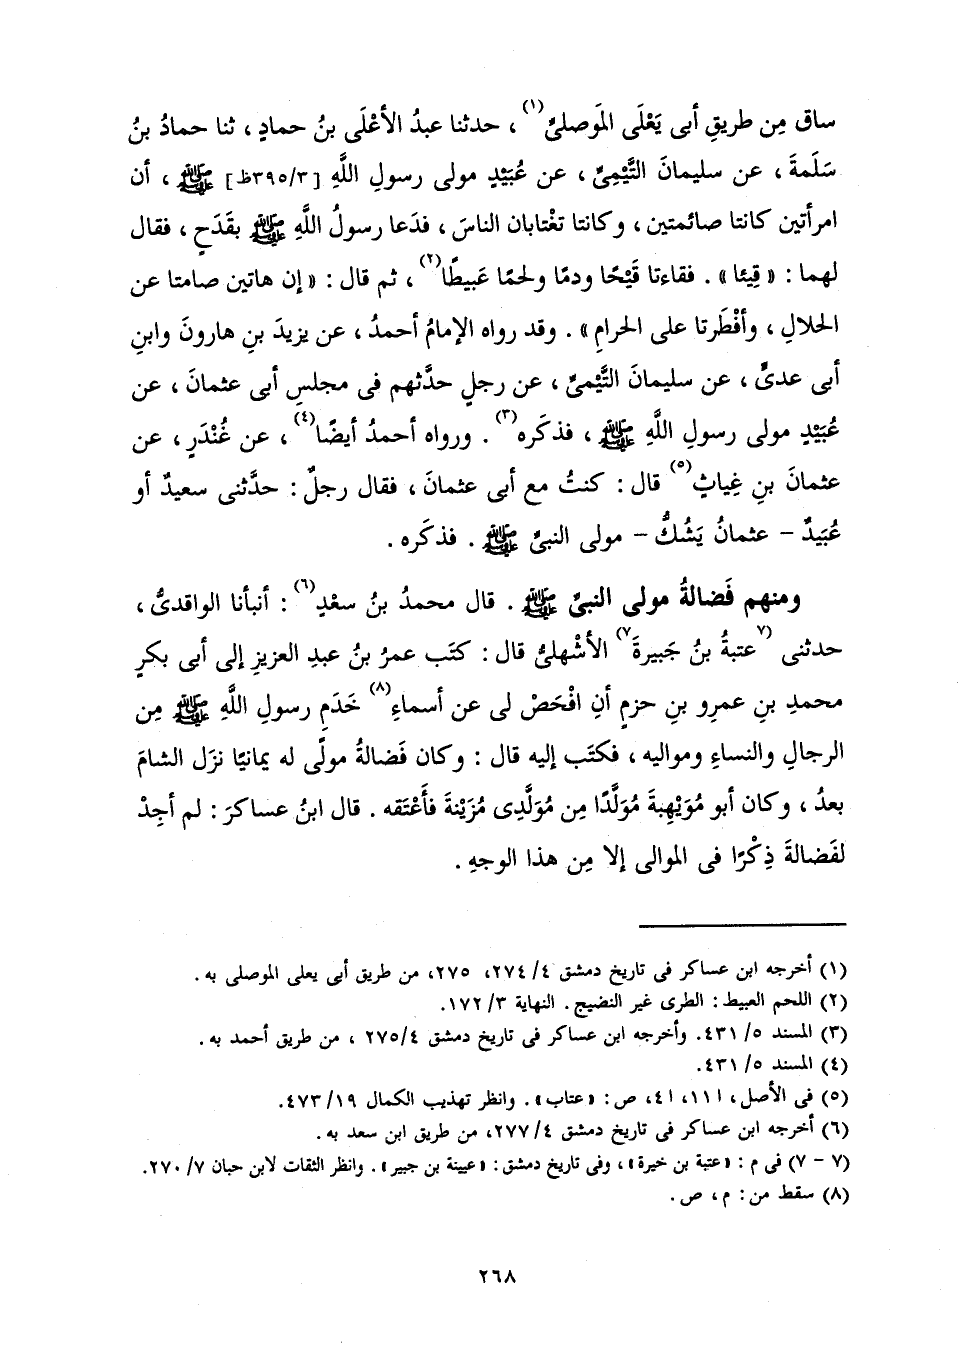 ساق مِن طريقِ أبى يَعْلَى المَوصلىِّ(١)، حدثنا عبدُ الأعْلَى بنُ حمادٍ، ثنا حمادُ بنُ
سَلَمةَ، عن سليمانَ التَّيْمِىِّ، عن عُبَيْدٍ مولى رسولِ اللَّهِ [٣٩٥/٣ظ] ﷺ، أن
امرأتين كانتا صائمتين، وكانتا تغْتابان الناسَ، فدَعا رسولُ اللَّهِ ﷺ بقَدَحٍ، فقال
لهما: «قِيئا». فقاءتا قَيْحًا ودمًا ولحمًا عَبيطًا(٢)، ثم قال: «إن هاتين صامتا عن
الحلالِ، وأفْطَرتا على الحرامِ». وقد رواه الإمامُ أحمدُ، عن يزيدَ بنِ هارونَ وابنِ
أبى عدىٍّ، عن سليمانَ التَّيْمىِّ، عن رجلٍ حدَّثهم فى مجلسِ أبى عثمانَ، عن
عُبَيْدٍ مولى رسولِ اللَّهِ ﷺ، فذكَره(٣). ورواه أحمدُ أيضًا(٤)، عن غُنْدَرٍ، عن
عثمانَ بنِ غِياثٍ(٥) قال: كنتُ مع أبى عثمانَ، فقال رجلٌ: حدَّثنى سعيدٌ أو
عُبَيدٌ - عثمانُ يَشُكُّ - مولى النبىِّ ﷺ. فذكَره.
ومنهم فَضالةُ مولى النبىِّ ﷺ. قال محمدُ بنُ سعْدٍ(٦): أنبأنا الواقدىُّ،
حدثنى (٧عتبةُ بنُ جَبيرةَ٧) الأشْهلىُّ قال: كتَب عمرُ بنُ عبدِ العزيزِ إلى أبى بكرِ
محمدِ بنِ عمرِو بنِ حزمٍ أنِ افْحَصْ لى عن أسماءِ(٨) خَدَمِ رسولِ اللَّهِ ﷺ مِن
الرجالِ والنساءِ ومواليه، فكتَب إليه قال: وكان فَضالةُ مولًى له يمانيًا نزَل الشامَ
بعدُ، وكان أبو مُوَيْهِبةَ مُوَلَّدًا مِن مُوَلَّدِى مُزَيْنةَ فأَعْتَقه. قال ابنُ عساكرَ: لم أجِدْ
لفَضالةَ ذِكْرًا فى الموالى إلا مِن هذا الوجهِ.
(١) أخرجه ابن عساكر فى تاريخ دمشق ٤/ ٢٧٤، ٢٧٥، من طريق أبى يعلى الموصلى به.
(٢) اللحم العبيط: الطرى غير النضيج. النهاية ٣/ ١٧٢.
(٣) المسند ٥/ ٤٣١. وأخرجه ابن عساكر فى تاريخ دمشق ٢٧٥/٤، من طريق أحمد به.
(٤) المسند ٥/ ٤٣١.
(٥) فى الأصل، ا ١١، ا ٤، ص: «عتاب». وانظر تهذيب الكمال ١٩/ ٤٧٣.
(٦) أخرجه ابن عساكر فى تاريخ دمشق ٤/ ٢٧٧، من طريق ابن سعد به.
(٧ - ٧) فى م: «عتبة بن خيرة»، وفى تاريخ دمشق: «عيينة بن جبير». وانظر الثقات لابن حبان ٧/ ٢٧٠.
(٨) سقط من: م، ص.
٢٦٨